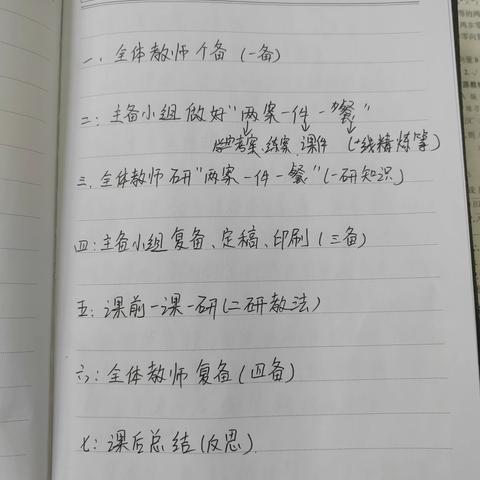 一、全体教师个备(一备)
二:主备小组做好"两案一件一餐"
学案、练案、课件 (一线精炼等)
三、全体教师研"两案一件一餐"(一研知识)
四:主备小组复备、定稿、印刷(三备)
五:课前一课一研(二研教法)
六:全体教师复备(四备)
七:课后总结(反思)